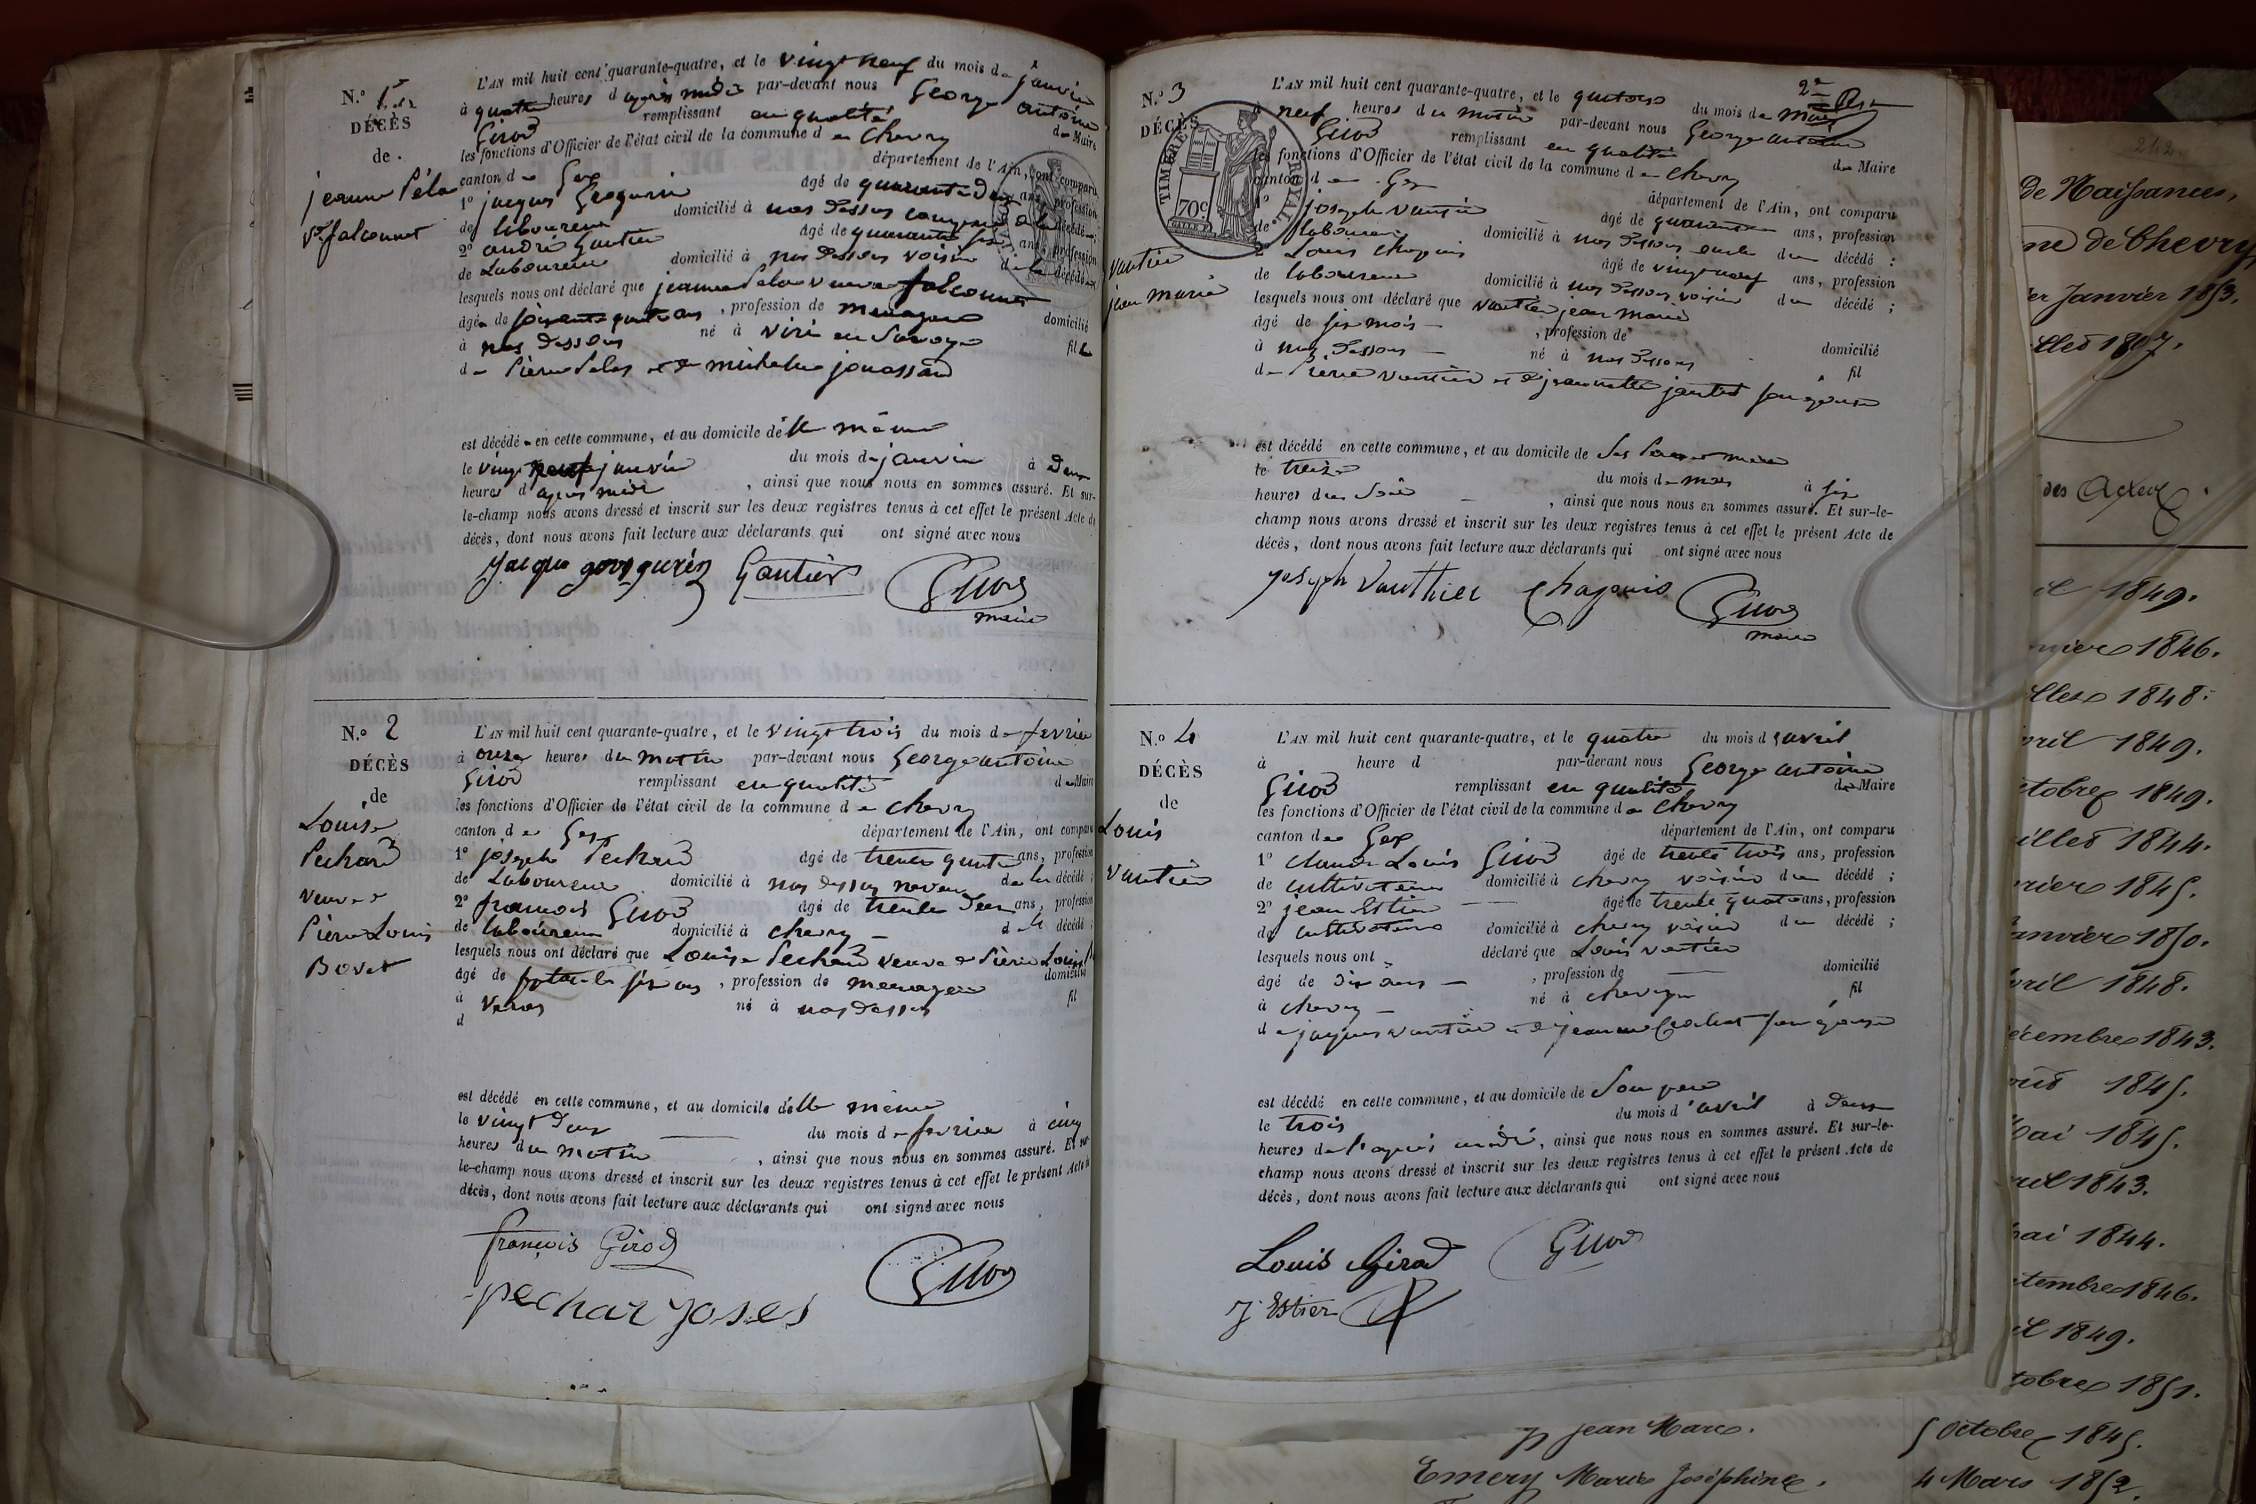 N.º 1er
DÉCÈS
de
jeanne Péla
ve falconnet
L'AN mil huit cent quarante-quatre, et le vingt neuf du mois de janvier
à quatre heures d après midi par-devant nous George antoine
Girod remplissant en qualité de Maire
les fonctions d'Officier de l'état civil de la commune d e Chevry
canton d e Gex département de l'Ain, ont comparu
1º jacques âgé de quarante deux ans, profession
de laboureur domicilié à nos dessus décédé
2º andré Gautier âgé de quarante six ans, profession
de Laboureur domicilié à nos dessous voisin de la décédée
lesquels nous ont déclaré que jeanne Pela veuve falconnet
âgée de soixante quatre ans, profession de menagere domicilié
à nos dessous né à viri en Savoye fille
de Pierre Pelas et de michelle jouassard
est décédée en cette commune, et au domicile d'elle même
le vingt neuf janvier du mois de janvier à deux
heures d après midi, ainsi que nous nous en sommes assuré. Et sur-
le-champ nous avons dressé et inscrit sur les deux registres tenus à cet effet le présent Acte de
décès, dont nous avons fait lecture aux déclarants qui ont signé avec nous
Jacque Gautier Girod
maire
N.º 2
DÉCÈS
de
Louise
Pechard
veuve de
Pierre Louis
Bovet
L'AN mil huit cent quarante-quatre, et le vingt trois du mois de fevrier
à onze heures du matin par-devant nous George antoine
Girod remplissant en qualité de Maire
les fonctions d'Officier de l'état civil de la commune d e chevry
canton d e Gex département de l'Ain, ont comparu
1º joseph Pechard âgé de trente quatre ans, profession
de Laboureur domicilié à nos dessus neveu de la décédé ;
2º francois Girod âgé de trente deux ans, profession
de laboureur domicilié à chevry d décédé ;
lesquels nous ont déclaré que Louise Pechard veuve de Pierre Louis
âgé de ans, profession de menagere domicilié
à né à nos dessus fil
d
est décédé en cette commune, et au domicile d'elle même
le vingt deux du mois de fevrier à cinq
heures du matin, ainsi que nous nous en sommes assuré. Et sur-
le-champ nous avons dressé et inscrit sur les deux registres tenus à cet effet le présent Acte de
décès, dont nous avons fait lecture aux déclarants qui ont signé avec nous
françois Girod
Girod
pechar joses
2e
N.º 3
DÉCÈS
TIMBRE ROYAL.
70c
vautier
jean marie
L'AN mil huit cent quarante-quatre, et le quatorze du mois de mars
à neuf heures du matin par-devant nous George antoine
Girod remplissant en qualité de Maire
les fonctions d'Officier de l'état civil de la commune d e Chevry
canton d e Gex département de l'Ain, ont comparu
1º joseph vautier âgé de quarante ans, profession
de laboureur domicilié à nos dessous oncle du décédé :
2º Louis chapuis âgé de vingt neuf ans, profession
de laboureur domicilié à nos dessous voisin du décédé ;
lesquels nous ont déclaré que vautier jean marie
âgé de six mois, profession de domicilié
à nos dessous né à nos dessous fil
de Pierre vautier et de jeannette son epouse
est décédé en cette commune, et au domicile de
le treize du mois de mars à six
heures du soir, ainsi que nous nous en sommes assuré. Et sur-le-
champ nous avons dressé et inscrit sur les deux registres tenus à cet effet le présent Acte de
décès, dont nous avons fait lecture aux déclarants qui ont signé avec nous
joseph Vautthier Chapuis Girod
maire
N.º 4
DÉCÈS
de
Louis
vautier
L'AN mil huit cent quarante-quatre, et le quatre du mois d'avril
à heure d par-devant nous George antoine
Girod remplissant en qualité de Maire
les fonctions d'Officier de l'état civil de la commune d e chevry
canton de Gex département de l'Ain, ont comparu
1º claude Louis Girod âgé de trente trois ans, profession
de cultivateur domicilié à chevry voisin du décédé ;
2º jean Estier âgé de trente quatre ans, profession
de cultivateur domicilié à chevry voisin du décédé ;
lesquels nous ont déclaré que Louis vautier
âgé de dix ans, profession de domicilié
à chevry né à chevry fil
de jaques vautier et de jeanne son épouse
est décédé en cette commune, et au domicile de son pere
le trois du mois d'avril à deux
heures de l'après midi, ainsi que nous nous en sommes assuré. Et sur-le-
champ nous avons dressé et inscrit sur les deux registres tenus à cet effet le présent Acte de
décès, dont nous avons fait lecture aux déclarants qui ont signé avec nous
Louis Girod Girod
J. Estier
de Naissances,
de Chevry
Janvier 1853.
1807.
des Actes
1849.
1846.
1848.
1849.
1849.
1844.
1845.
1850.
1848.
1843.
1845.
1845.
1843.
1844.
1846.
1849.
1851.
Jean Marc. 5 Octobre 1845.
Emery Marie Joséphine. 4 Mars 1852.